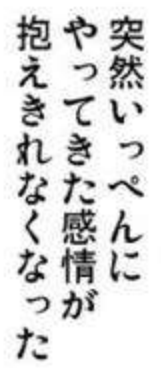 突然いっぺんに
やってきた感情が
抱えきれなくなった